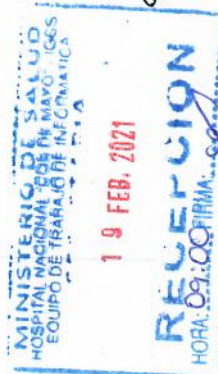 MINISTERIO DE SALUD
HOSPITAL NACIONAL "DOS DE MAYO"
EQUIPO DE TRABAJO DE INFORMATICA
19 FEB. 2021
RECEPCION
HORA: 09:00 FIRMA: